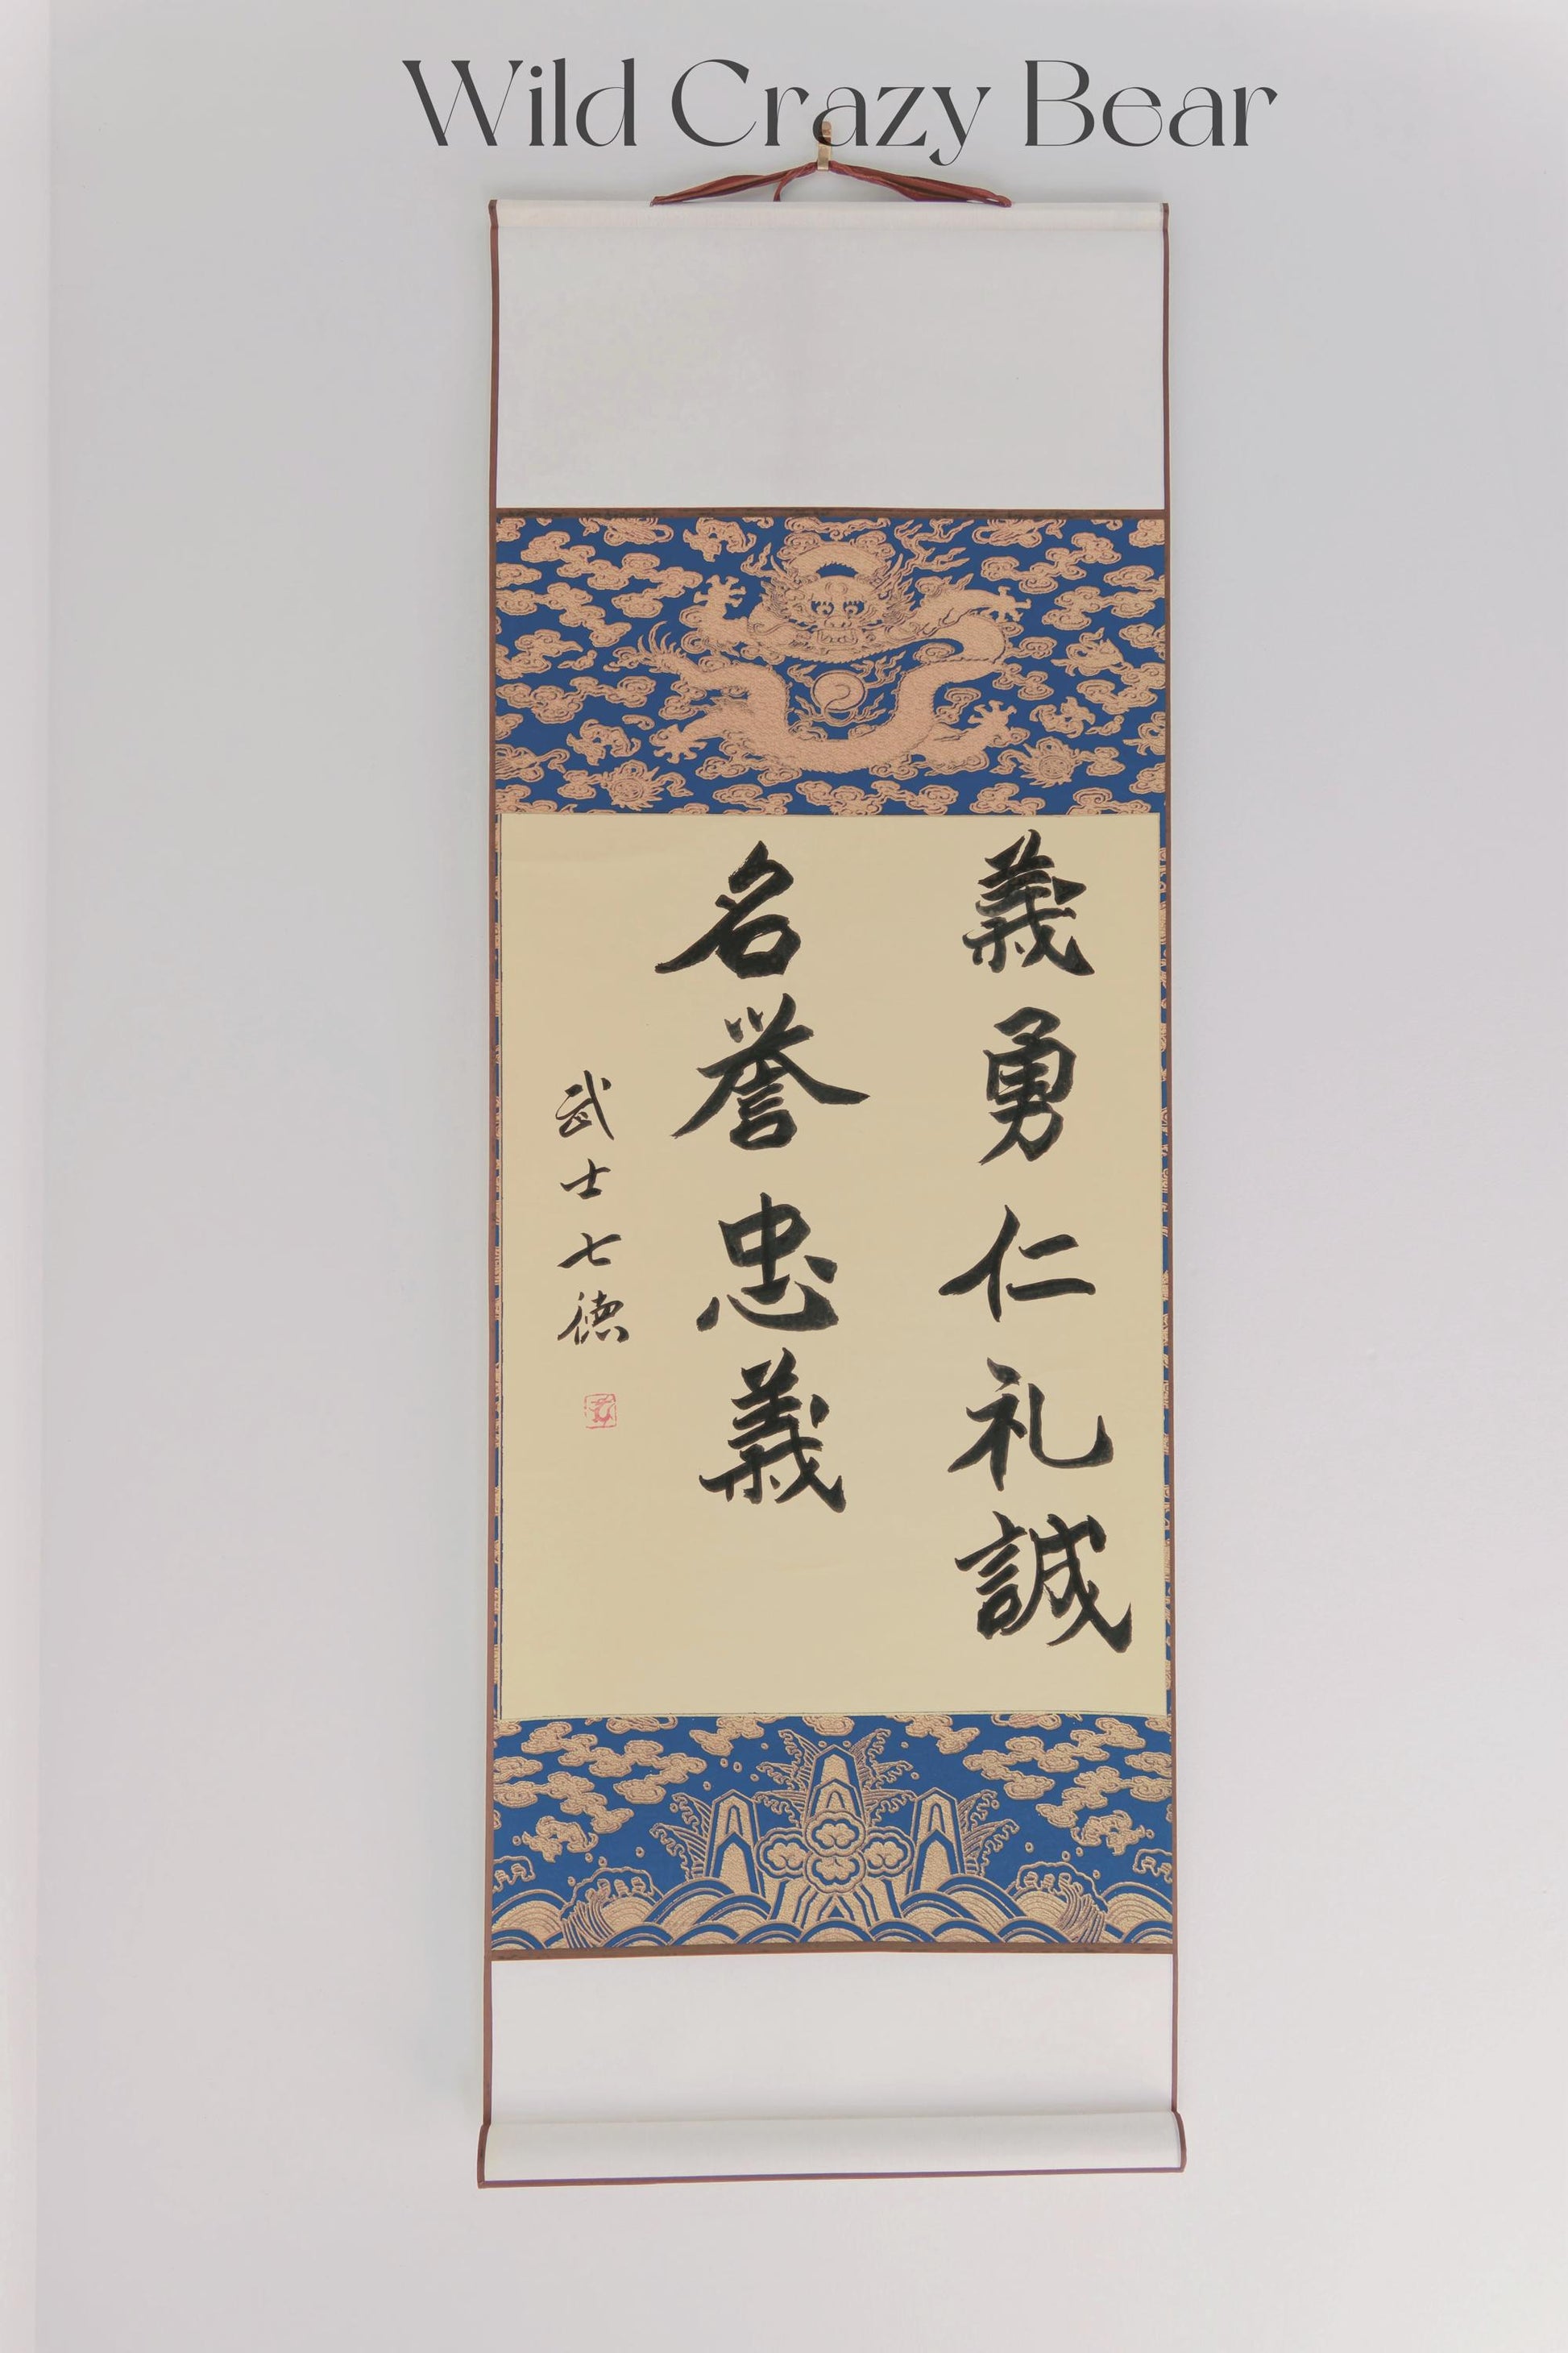 Wild Crazy Bear
義勇仁礼誠
名誉忠義
武士七徳